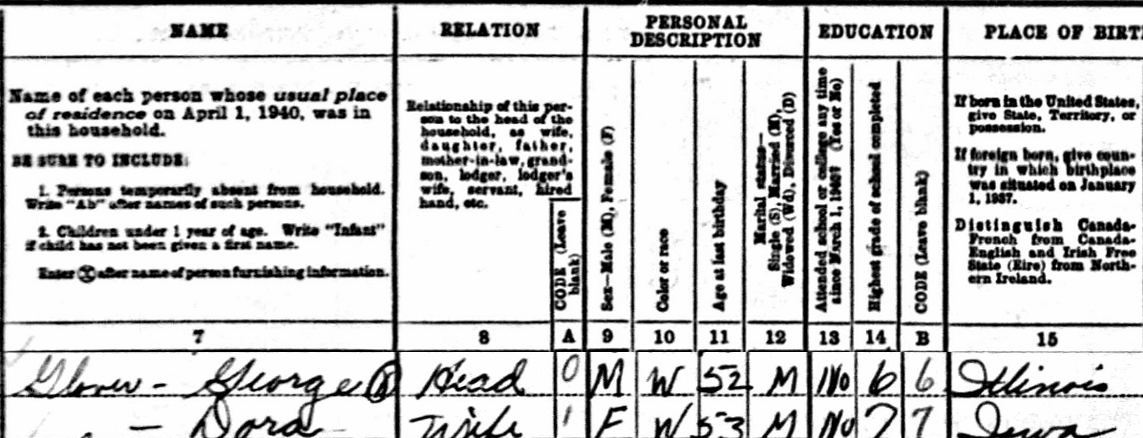 NAME
RELATION
PERSONAL
DESCRIPTION
EDUCATION
PLACE OF BIRT
Name of each person whose usual place
of residence on April 1, 1940, was in
this household.
BE SURE TO INCLUDE:
1. Persons temporarily absent from household.
Write "Ab" after names of such persons.
2. Children under 1 year of age. Write "Infant"
if child has not been given a first name.
Enter Ⓧ after name of person furnishing information.
Relationship of this per-
son to the head of the
household, as wife,
daughter, father,
mother-in-law, grand-
son, lodger, lodger's
wife, servant, hired
hand, etc.
CODE (Leave
blank)
Sex—Male (M), Female (F)
Color or race
Age at last birthday
Marital status—
Single (S), Married (M),
Widowed (Wd), Divorced (D)
Attended school or college any time
since March 1, 1940? (Yes or No)
Highest grade of school completed
CODE (Leave blank)
If born in the United States,
give State, Territory, or
possession.
If foreign born, give coun-
try in which birthplace
was situated on January
1, 1937.
Distinguish Canada-
French from Canada-
English and Irish Free
State (Eire) from North-
ern Ireland.
7 8 A 9 10 11 12 13 14 B 15
Glover - George Ⓧ Head 0 M W 52 M No 6 6 Illinois
— Dora Wife 1 F W 53 M No 7 7 Iowa